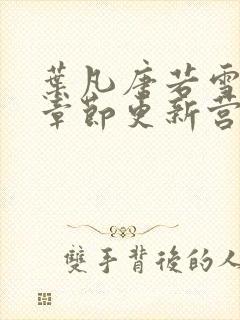 葉凡唐若雪
章節更新营
雙手背後的人